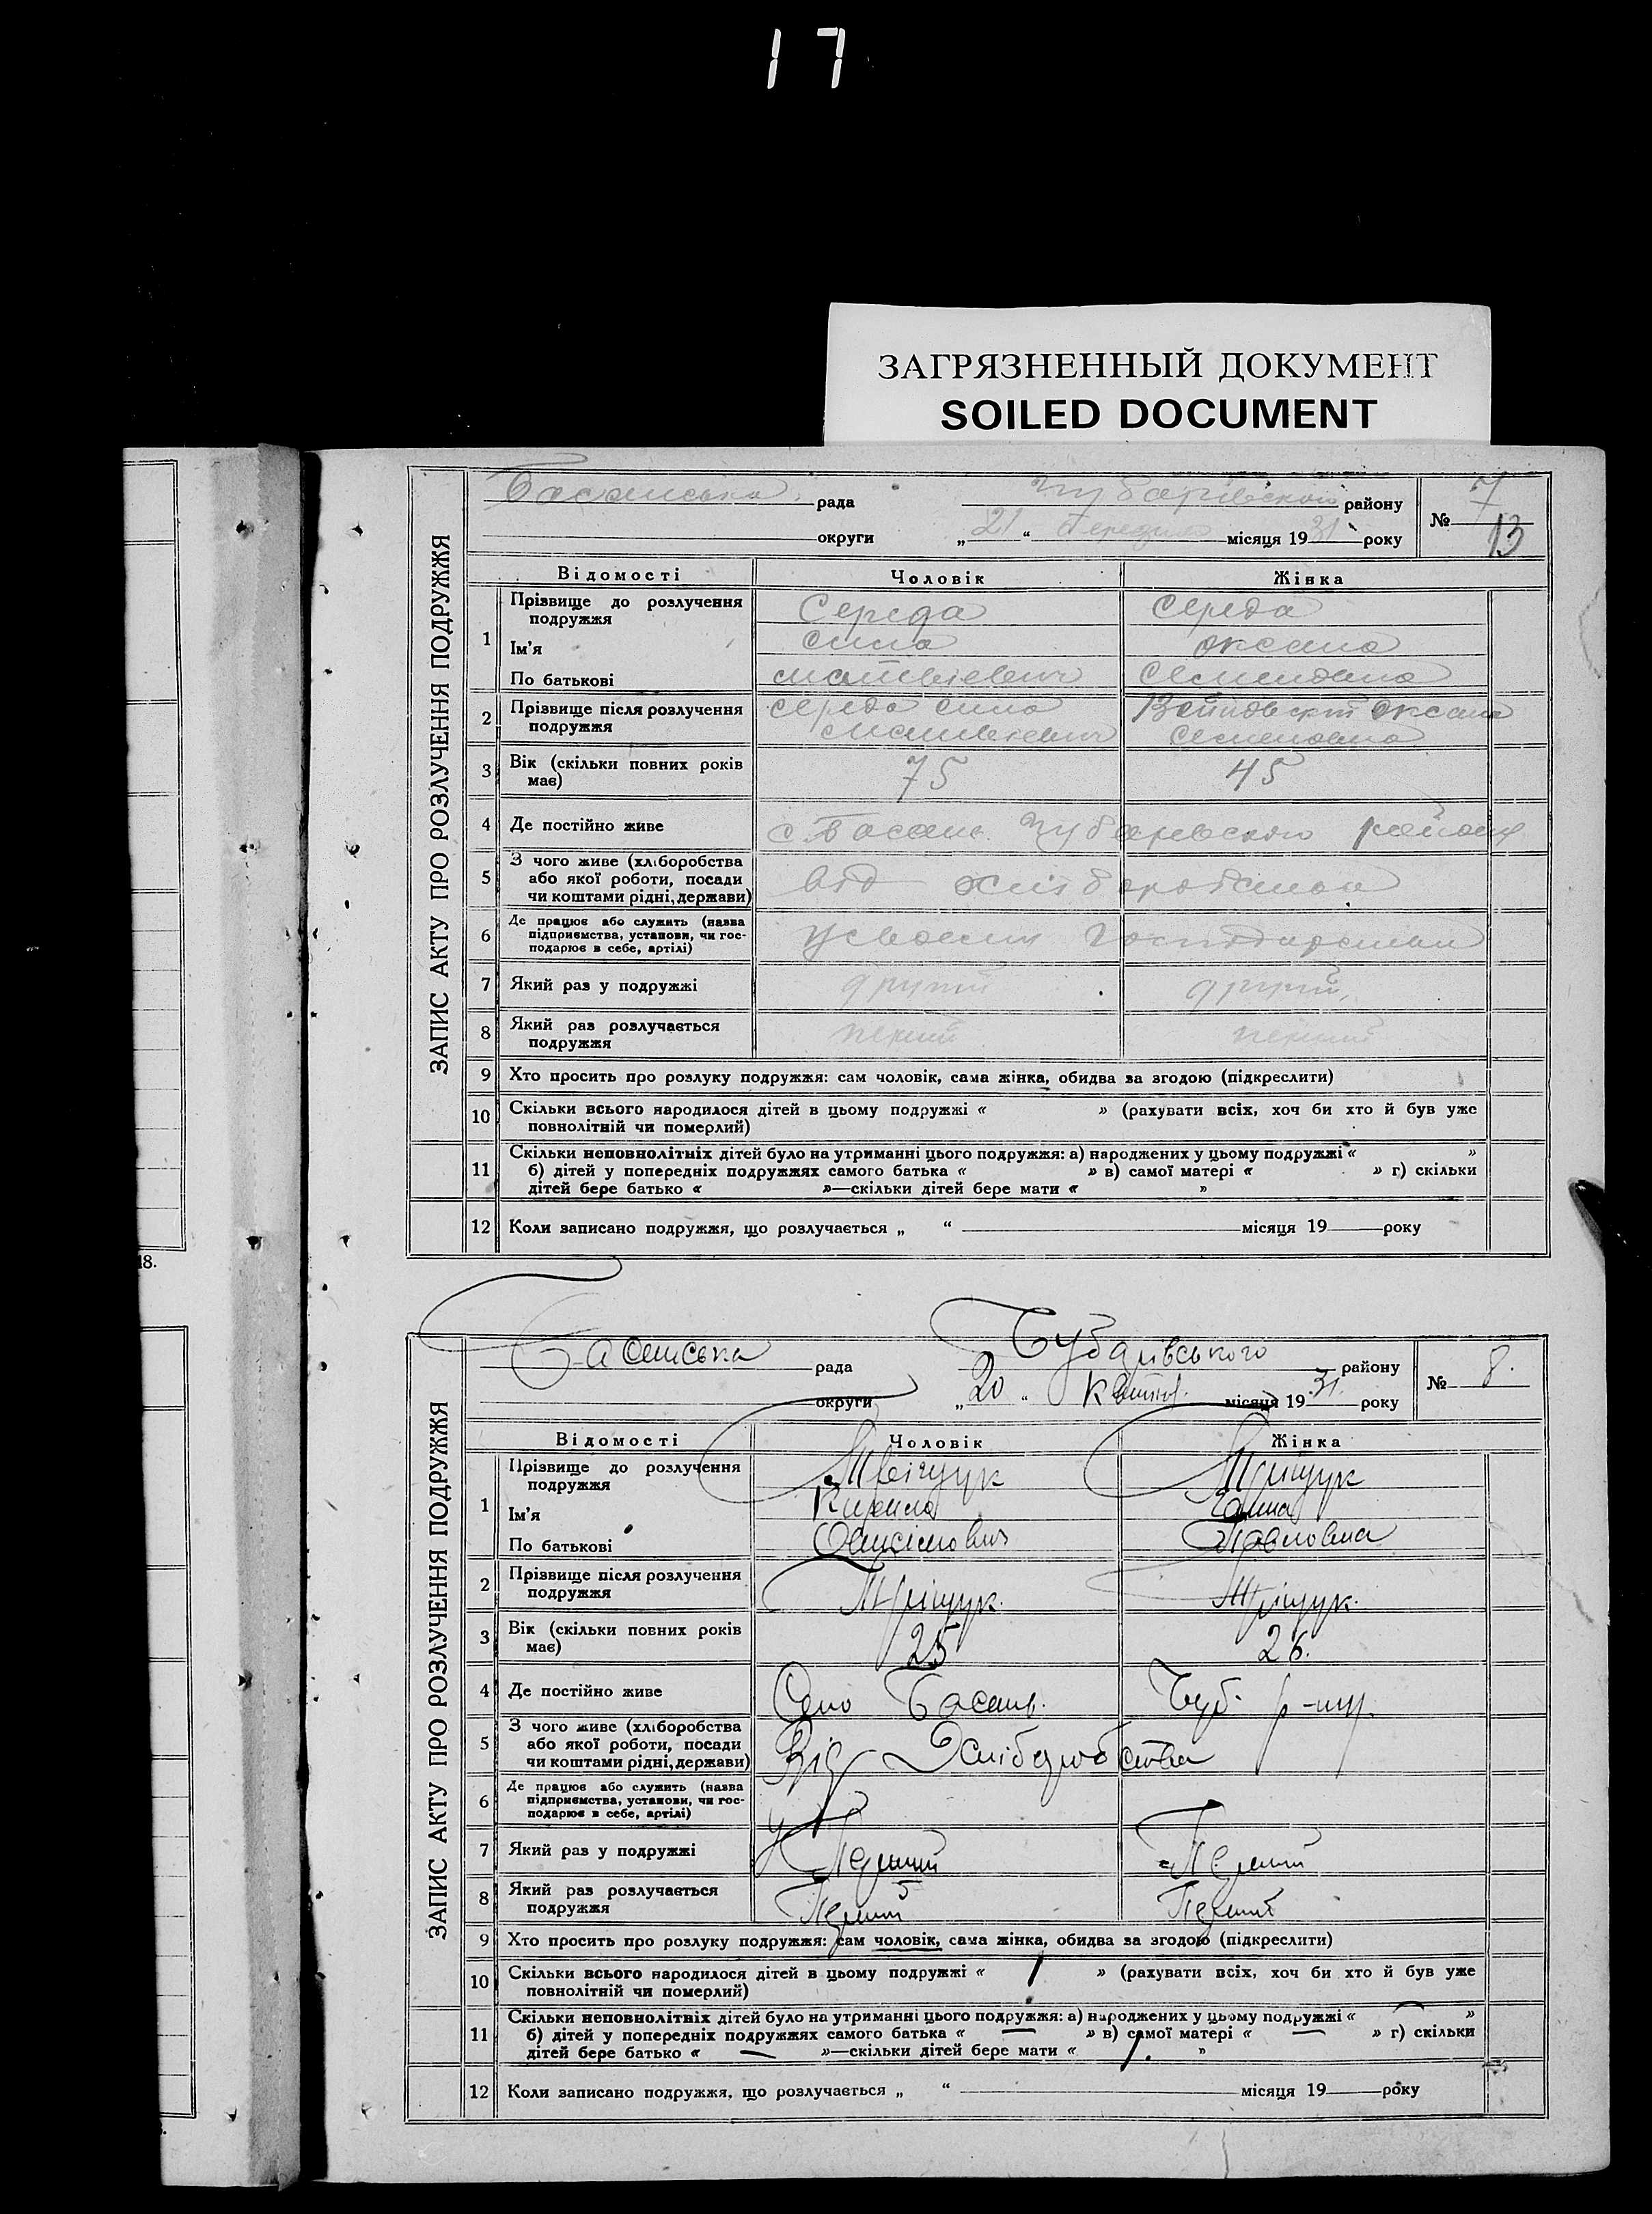 17
ЗАГРЯЗНЕННЫЙ ДОКУМЕНТ
SOILED DOCUMENT
ЗАПИС АКТУ ПРО РОЗЛУЧЕННЯ ПОДРУЖЖЯ
Басанська рада району № 7
13
округи „21“ березня місяця 1931 року
Відомості Чоловік Жінка
1 Прізвище до розлучення подружжя Середа Середа
Ім'я сила оксана
По батькові матвієвич
2 Прізвище після розлучення Середа сила оксана
подружжя матвієвич семеновна
3 Вік (скільки повних років 75 45
має)
4 Де постійно живе с. Басань району
5 З чого живе (хліборобства
або якої роботи, посади від хліборобства
чи коштами рідні, держави)
6 Де працює або служить (назва
підприємства, установи, чи гос-
подарює в себе, артілі)
7 Який раз у подружжі другий другий
8 Який раз розлучається перший перший
подружжя
9 Хто просить про розлуку подружжя: сам чоловік, сама жінка, обидва за згодою (підкреслити)
10 Скільки всього народилося дітей в цьому подружжі « » (рахувати всіх, хоч би хто й був уже
повнолітній чи померлий)
11 Скільки неповнолітніх дітей було на утриманні цього подружжя: а) народжених у цьому подружжі « »
б) дітей у попередніх подружжях самого батька « » в) самої матері « » г) скільки
дітей бере батько « »—скільки дітей бере мати « »
12 Коли записано подружжя, що розлучається „ “ місяця 19 року
18.
ЗАПИС АКТУ ПРО РОЗЛУЧЕННЯ ПОДРУЖЖЯ
Басанська рада Чубарівського району № 8.
округи „20“ квітня місяця 1931. року
Відомості Чоловік Жінка
1 Прізвище до розлучення Тріщук
подружжя
Ім'я Кирило Ганна
По батькові Павловна
2 Прізвище після розлучення Тріщук. Тріщук.
подружжя
3 Вік (скільки повних років 25 26.
має)
4 Де постійно живе Село Басань. Чуб. р-ну.
5 З чого живе (хліборобства
або якої роботи, посади Від Хліборобства
чи коштами рідні, держави)
6 Де працює або служить (назва
підприємства, установи, чи гос-
подарює в себе, артілі)
7 Який раз у подружжі Перший Перший
8 Який раз розлучається Перший Перший
подружжя
9 Хто просить про розлуку подружжя: сам чоловік, сама жінка, обидва за згодою (підкреслити)
10 Скільки всього народилося дітей в цьому подружжі « 1 » (рахувати всіх, хоч би хто й був уже
повнолітній чи померлий)
11 Скільки неповнолітніх дітей було на утриманні цього подружжя: а) народжених у цьому подружжі « — »
б) дітей у попередніх подружжях самого батька « — » в) самої матері « — » г) скільки
дітей бере батько « — »—скільки дітей бере мати « 1. »
12 Коли записано подружжя, що розлучається „ “ місяця 19 року